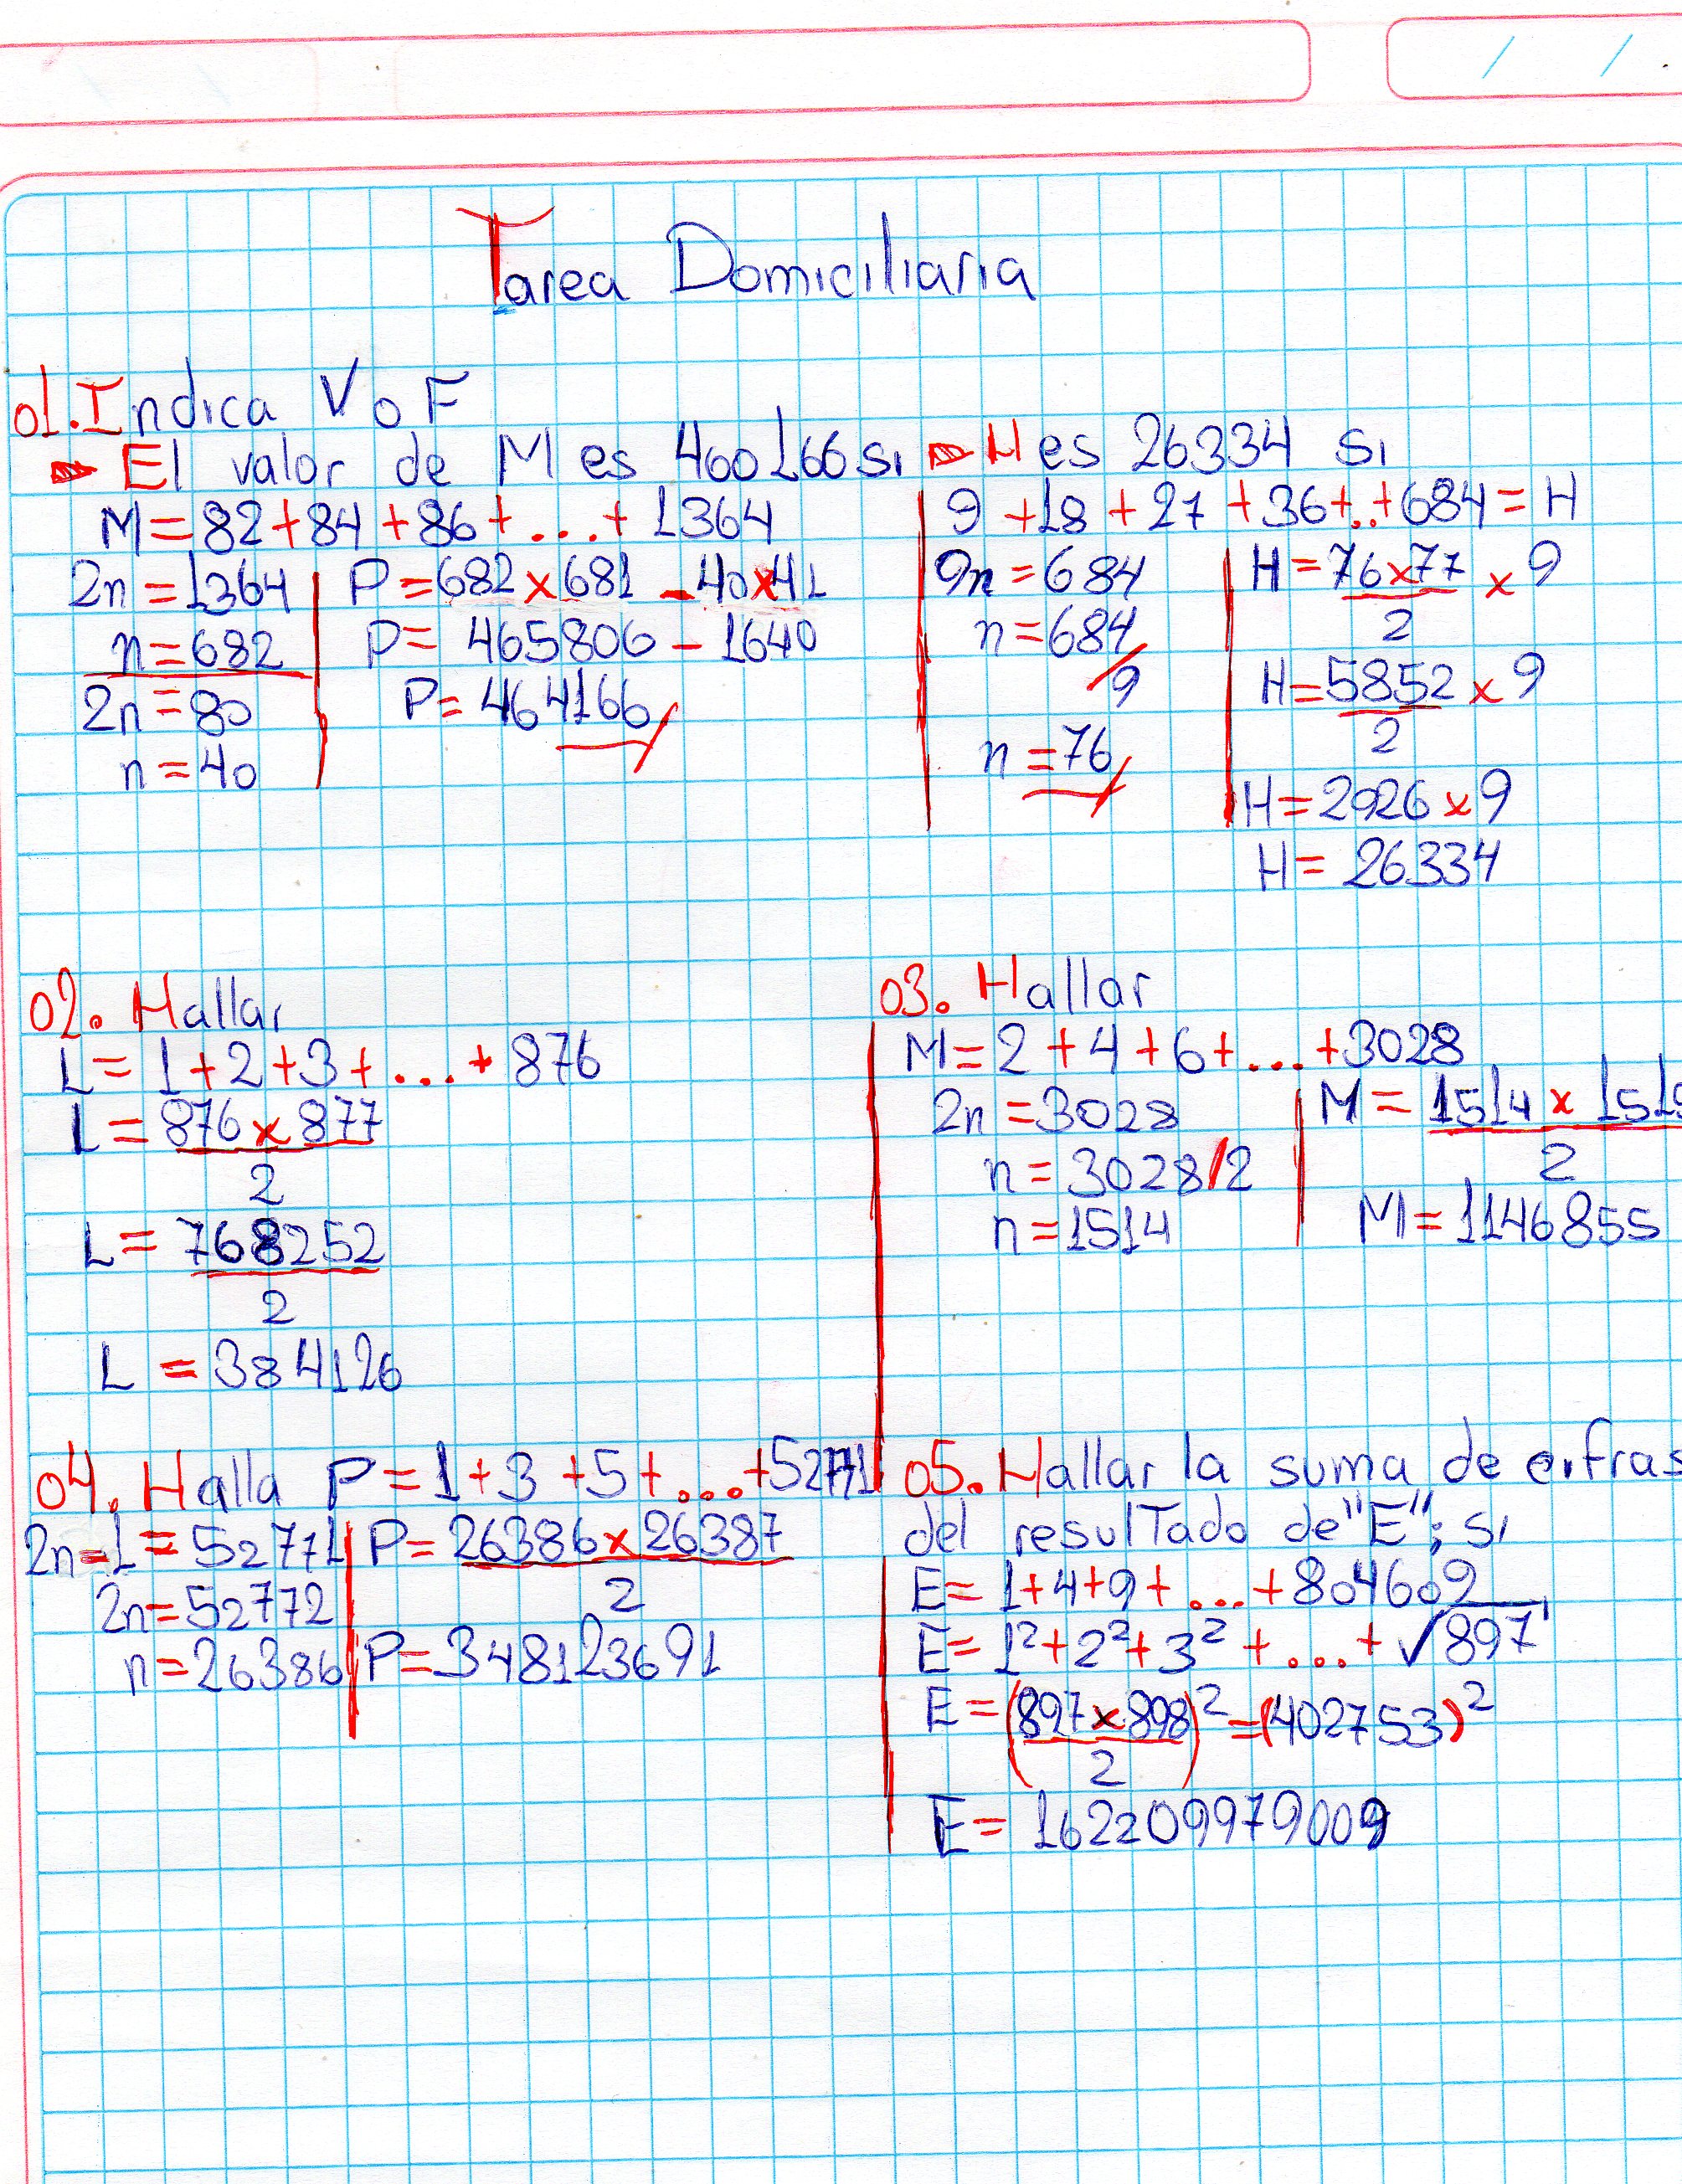 Tarea Domiciliaria
01. Indica V o F
El valor de M es 460166 si
M = 82 + 84 + 86 + ... + 1364
2n = 1364
n = 682
2n = 80
n = 40
P = 682 x 681 - 40 x 41
P = 465806 - 1640
P = 464166
H es 26334 si
9 + 18 + 27 + 36 + .. + 684 = H
9n = 684
n = 684/9
n = 76
H = 76 x 77 x 9
2
H = 5852 x 9
2
H = 2926 x 9
H = 26334
02. Hallar
L = 1 + 2 + 3 + ... + 876
L = 876 x 877
2
L = 768252
2
L = 384126
03. Hallar
M = 2 + 4 + 6 + ... + 3028
2n = 3028
n = 3028/2
n = 1514
M = 1514 x 1515
2
M = 1146855
04. Halla P = 1 + 3 + 5 + ... + 52771
2n - 1 = 52771
2n = 52772
n = 26386
P = 26386 x 26387
2
P = 348123691
05. Hallar la suma de cifras
del resultado de "E"; si
E = 1 + 4 + 9 + ... + 804609
E = 1² + 2² + 3² + ... + √897
E = (897 x 898)² = (402753)²
2
E = 162209979009